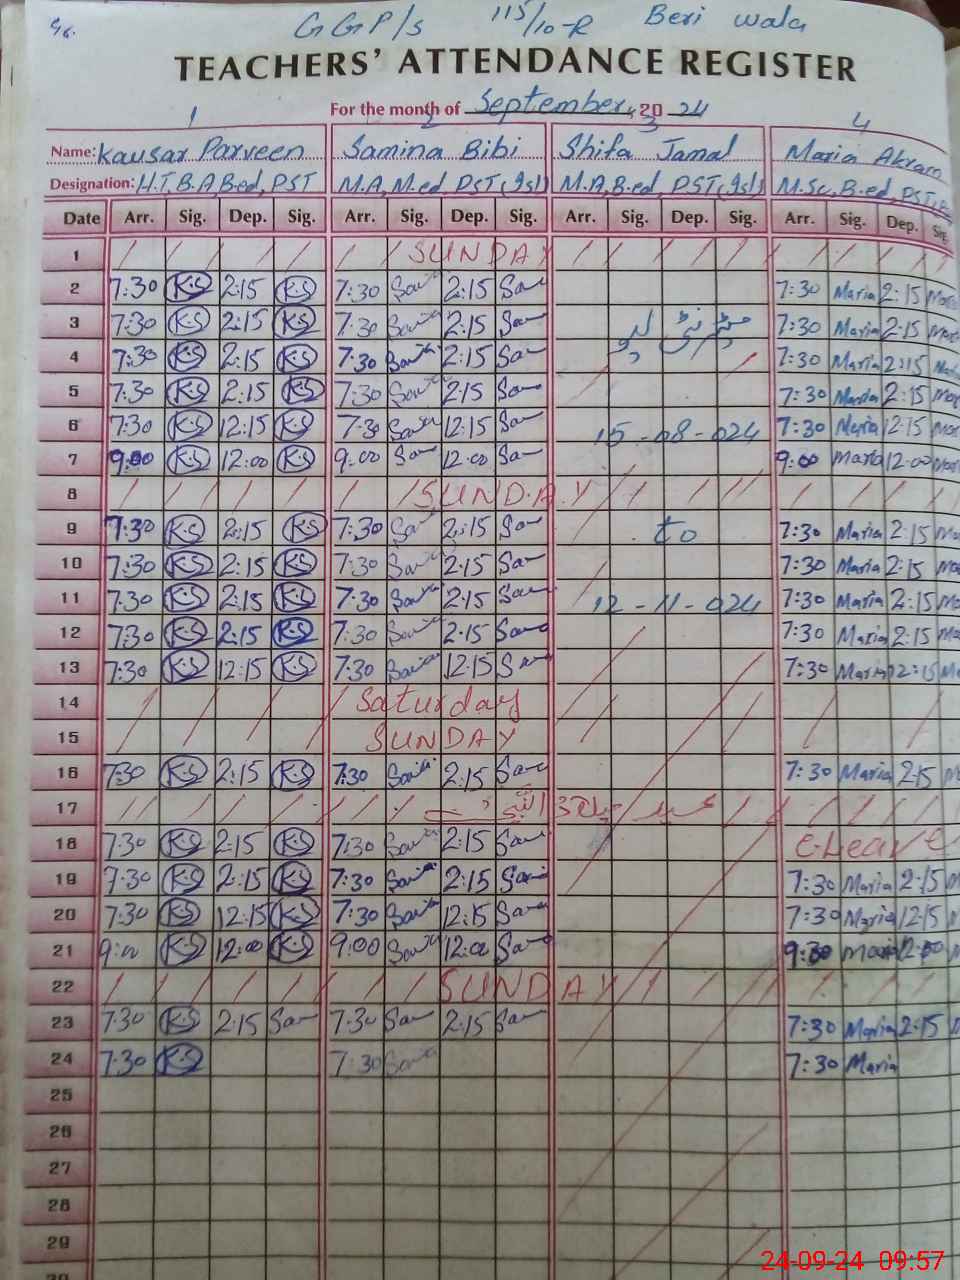 GGP/s 115/10-R Beri wala
TEACHERS' ATTENDANCE REGISTER
For the month of September, 20 24
1 2 3 4
Name: Kausar Parveen Samina Bibi Shifa Jamal Maria Akram
Designation: H.T, B.A B.ed, PST M.A, M.ed PST (Isl) M.A, B.ed, PST (Isl) M.Sc, B.ed, PST
Date Arr. Sig. Dep. Sig. Arr. Sig. Dep. Sig. Arr. Sig. Dep. Sig. Arr. Sig. Dep. Sig.
1 SUNDAY
2 7:30 K.S 2:15 K.S 7:30 2:15 7:30 Maria 2:15
3 7:30 K.S 2:15 K.S 7:30 2:15 7:30 Maria 2:15
4 7:30 K.S 2:15 K.S 7:30 2:15 7:30 Maria 2:15
5 7:30 K.S 2:15 K.S 7:30 2:15 7:30 Maria 2:15
6 7:30 K.S 12:15 K.S 7:30 12:15 15-08-024 7:30 Maria 12:15
7 9:00 K.S 12:00 K.S 9:00 12:00 9:00 Maria 12:00
8 SUNDAY
9 7:30 K.S 2:15 K.S 7:30 2:15 to 7:30 Maria 2:15
10 7:30 K.S 2:15 K.S 7:30 2:15 7:30 Maria 2:15
11 7:30 K.S 2:15 K.S 7:30 2:15 12-11-024 7:30 Maria 2:15
12 7:30 K.S 2:15 K.S 7:30 2:15 7:30 Maria 2:15
13 7:30 K.S 12:15 K.S 7:30 12:15 7:30 Maria 12:15
14 Saturday
15 SUNDAY
16 7:30 K.S 2:15 K.S 7:30 2:15 7:30 Maria 2:15
17 عید میلاد النبی
18 7:30 K.S 2:15 K.S 7:30 2:15 C-Leave
19 7:30 K.S 2:15 K.S 7:30 2:15 7:30 Maria 2:15
20 7:30 K.S 12:15 K.S 7:30 12:15 7:30 Maria 12:15
21 9:00 K.S 12:00 K.S 9:00 12:00 9:30 Maria 12:00
22 SUNDAY
23 7:30 K.S 2:15 7:30 2:15 7:30 Maria 2:15
24 7:30 K.S 7:30 7:30 Maria
25
26
27
28
29
24-09-24 09:57